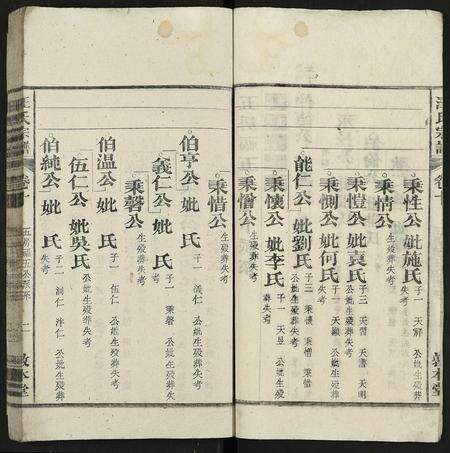 汪氏宗譜
卷十
敦本堂
秉性公妣施氏 子一 天解 公妣生殁葬失考
秉情公 生殁葬失考
秉愷公妣袁氏 子三 天晋 天書 天明 公妣生殁葬失考
秉惻公妣何氏 子一 天顯 公妣生殁葬失考
能仁公妣劉氏 子三 秉懷 秉憎 秉惜 公妣生殁葬失考
秉懷公妣李氏 子一 天昱 公妣生殁葬失考
秉憎公 生殁葬失考
秉惜公 生殁葬失考
伯亨公妣 氏 子一 義仁 公妣生殁葬失考
義仁公妣 氏 子一 秉磬 公妣生殁葬失考
秉磬公 生殁葬失考
伯温公妣 氏 子一 伍仁 公妣生殁葬失考
伍仁公妣吳氏 公妣生殁葬失考
伯純公妣 氏 子二 洞仁 沣仁 公妣生殁葬失考
汪氏宗譜
卷十
敦本堂